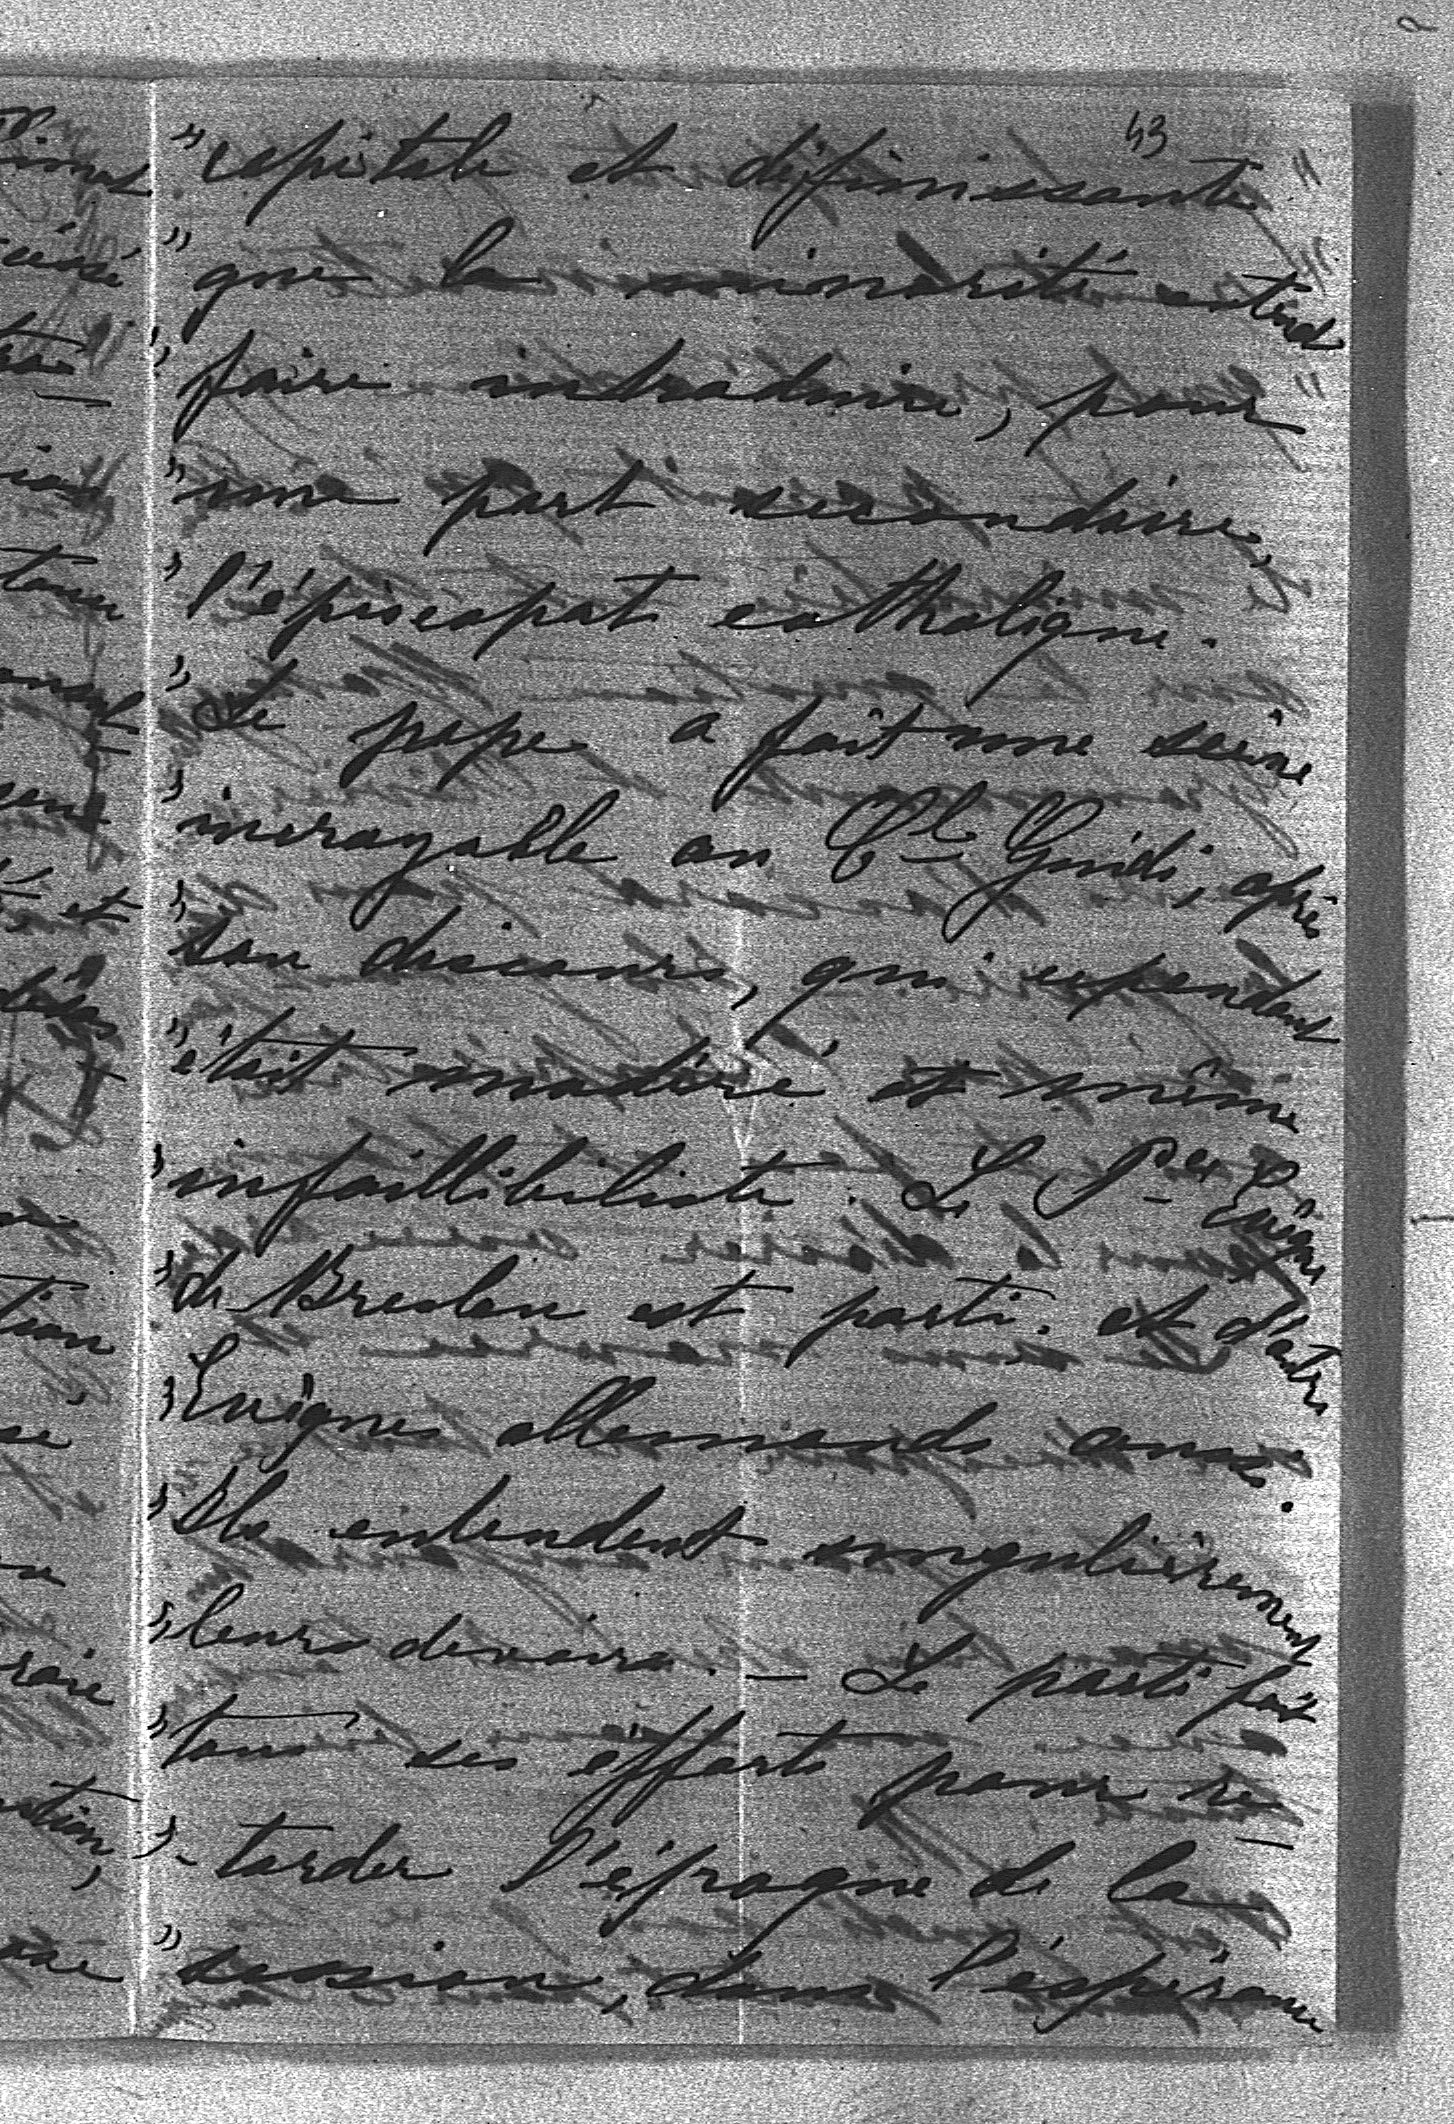 53
" capitale et définissante
" que la minorité entend
" faire introduire, pour
" une part secondaire,
" l'épiscopat catholique.
" Le pape a fait une scène
" incroyable au Cal Guidi, après
" son discours, qui cependant
" était modéré et même
" infaillibiliste. Le Pce Evêque
" de Breslau est parti. et d'autres
" Evêques allemands aussi.
" Ils entendent singulièrement
" leurs devoirs. — Le parti fait
" tous ses efforts pour re-
" -tarder l'époque de la
" session, dans l'espérance